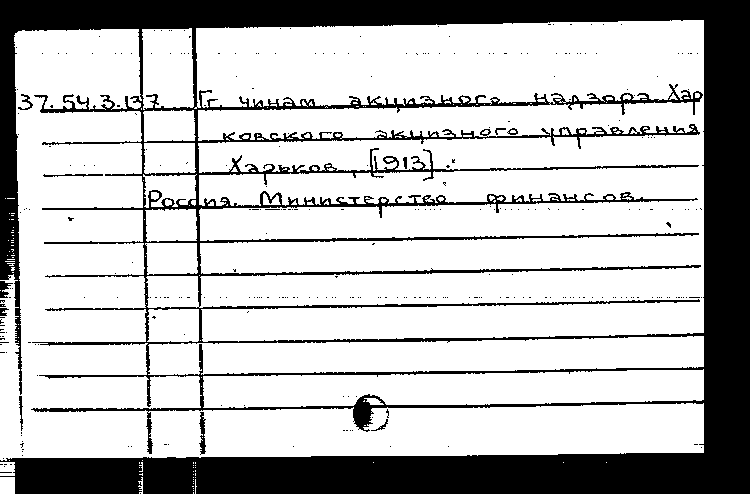 37.54.3.137. Гг. чинам акцизного надзора Хар
ковского акцизного управления
Харьков, [1913].
Россия. Министерство финансов.